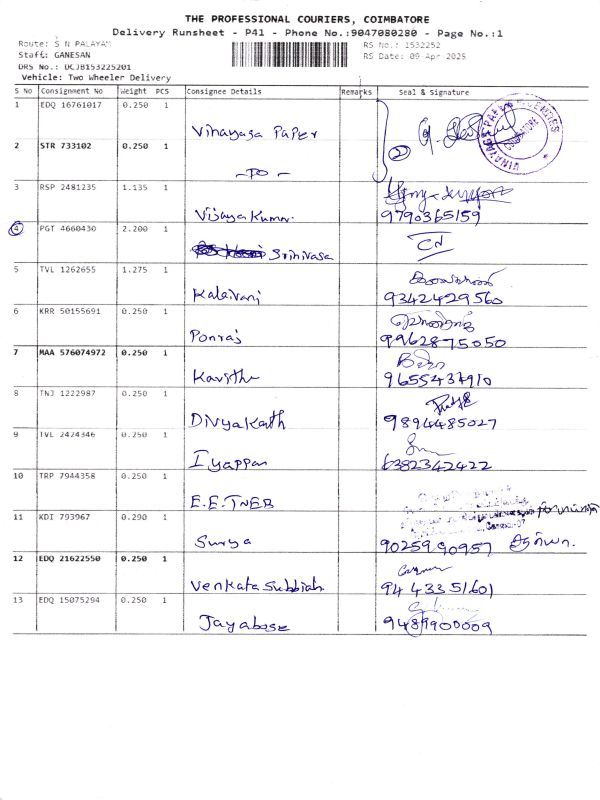 THE PROFESSIONAL COURIERS, COIMBATORE
Delivery Runsheet - P41 - Phone No.:9047080280 - Page No.:1
Route: S N PALAYAM
RS No.: 1532252
Staff: GANESAN
RS Date: 09-Apr 2025
DRS No.: DCJB153225201
Vehicle: Two Wheeler Delivery
S No Consignment No Weight PCS Consignee Details Remarks Seal & Signature
1 EDQ 16761017 0.250 1 Vinayaga Paper
2 STR 733102 0.250 1 -DO- 2
3 RSP 2481235 1.135 1 Vijaya Kumar 9790365159
4 PGT 4660430 2.200 1 Srinivasa CN
5 TVL 1262655 1.275 1 Kalaivani 9342429560
6 KRR 50155691 0.250 1 Ponraj 9962875050
7 MAA 576074972 0.250 1 Kavitha 9655437910
8 TNJ 1222987 0.250 1 Divya Kath 9894485027
9 TVL 2424346 0.250 1 Iyappan 6382342422
10 TRP 7944358 0.250 1 E.E.TNEB
11 KDI 793967 0.290 1 Surya 9025990957
12 EDQ 21622550 0.250 1 Venkata Subbiah 9443351601
13 EDQ 15075294 0.250 1 Jayabose 9489900009